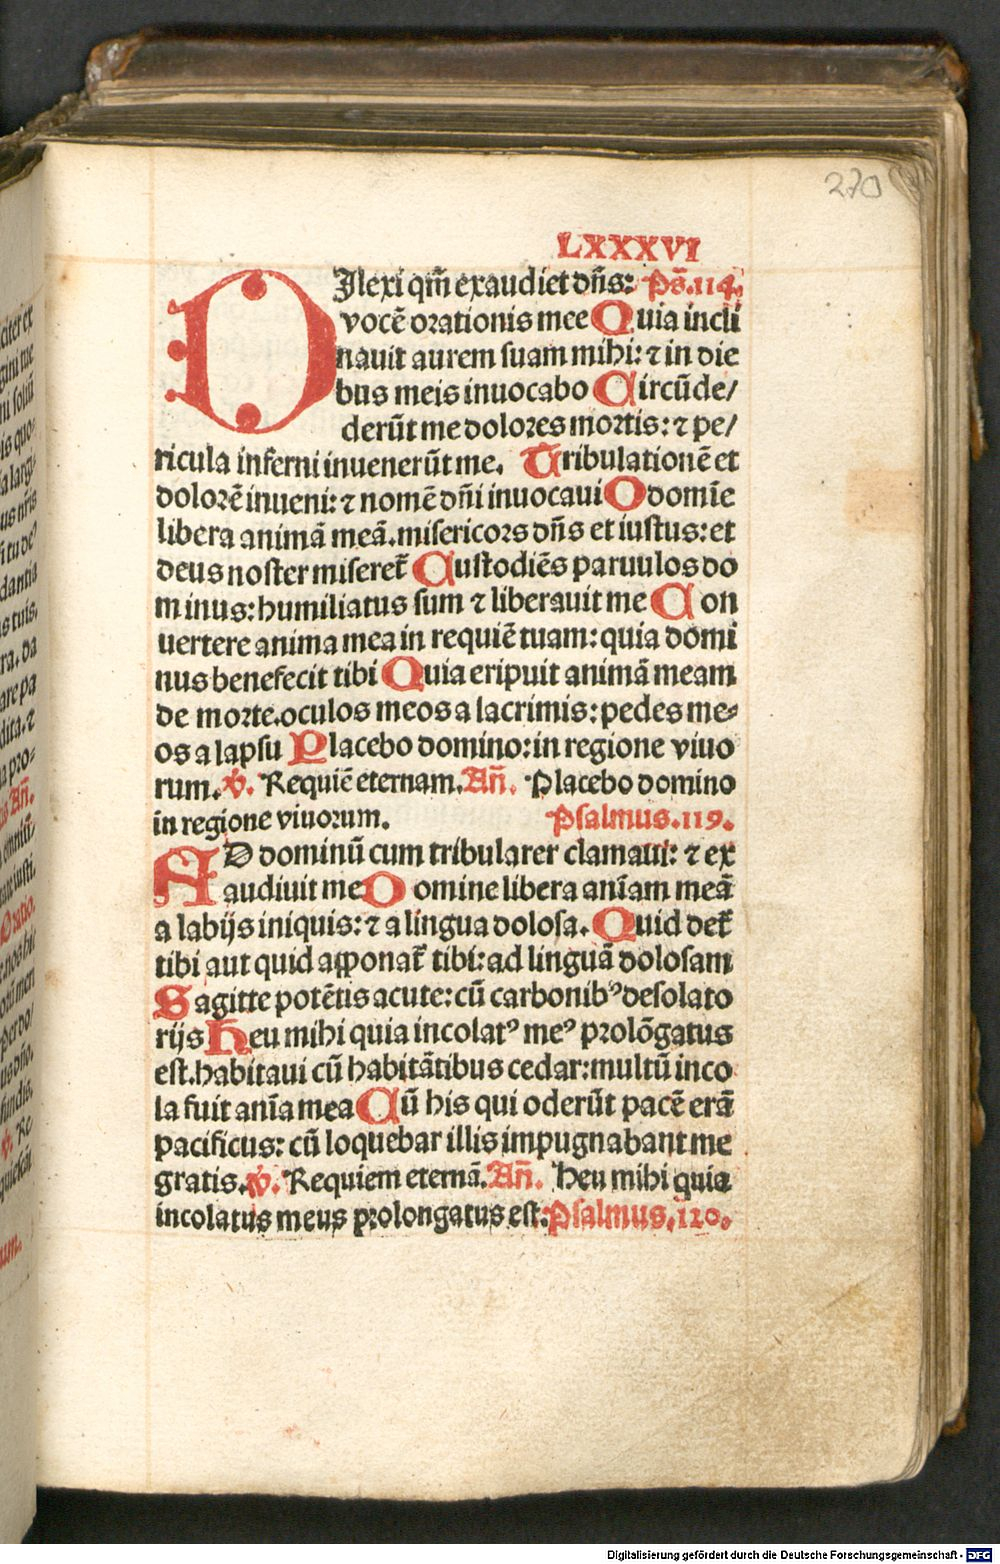 270
LXXXVI
DIlexi qm̄ exaudiet dn̄s: Ps̄.114.
vocē orationis mee Quia incli
nauit aurem suam mihi: ⁊ in die
bus meis inuocabo Circūde/
derūt me dolores mortis: ⁊ pe/
ricula inferni inuenerūt me. Tribulationē et
dolorē inueni: ⁊ nomē dn̄i inuocaui O domīe
libera animā meā. misericors dn̄s et iustus: et
deus noster miseret᷑ Custodiēs paruulos do
minus: humiliatus sum ⁊ liberauit me Con
uertere anima mea in requiē tuam: quia domi
nus benefecit tibi Quia eripuit animā meam
de morte. oculos meos a lacrimis: pedes me⸗
os a lapsu Placebo domino: in regione viuo
rum. ℣. Requiē eternam. Añ. Placebo domino
in regione viuorum. Psalmus.119.
AD dominū cum tribularer clamaui: ⁊ ex
audiuit me Domine libera anīam meā
a labijs iniquis: ⁊ a lingua dolosa. Quid det᷑
tibi aut quid apponat᷑ tibi: ad linguā dolosam
Sagitte potētis acute: cū carbonibꝰ desolato
rijs Heu mihi quia incolatꝰ meꝰ prolōgatus
est. habitaui cū habitātibus cedar: multū inco
la fuit anīa mea Cū his qui oderūt pacē erā
pacificus: cū loquebar illis impugnabant me
gratis. ℣. Requiem eternā. Añ. Heu mihi quia
incolatus meus prolongatus est. Psalmus.120.
citer ex
gini tue
is quo⸗
a largi⸗
us nr̄is
dantia
s tuis.
ra. da
are pa
dita. ⁊
a pro⸗
Añ.
Oratio.
per do/
us dn̄o.
℣. Re
um.
Digitalisierung gefördert durch die Deutsche Forschungsgemeinschaft - DFG